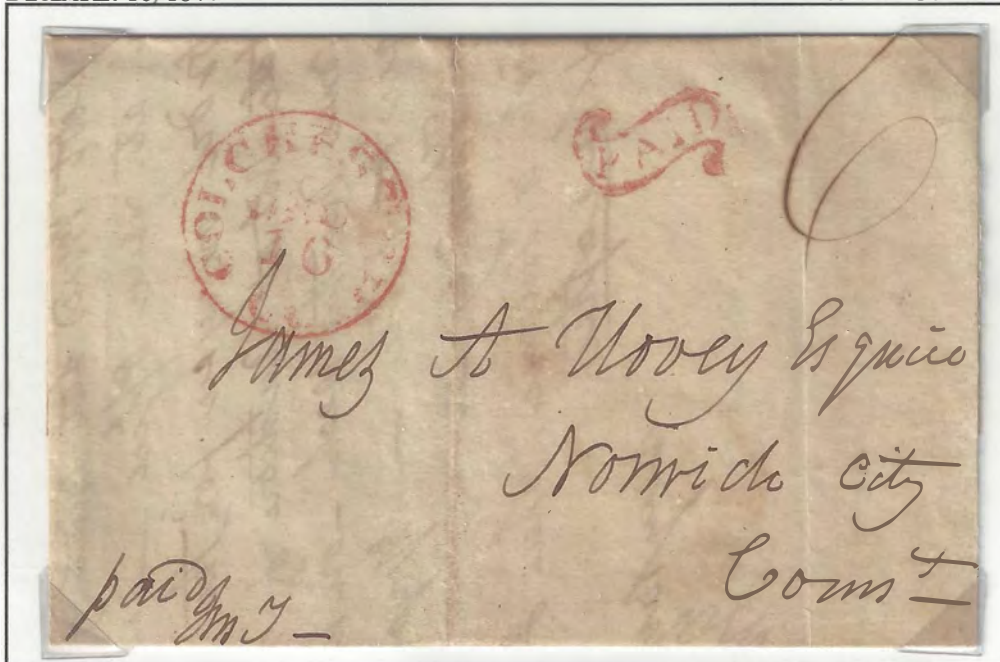 COLCHESTER
PAID
6
James A Hovey Esquire
Norwich City
Connt
paid